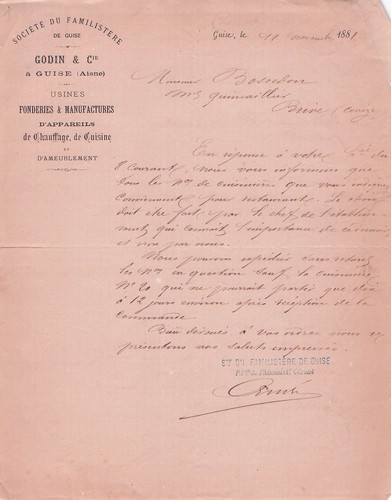 SOCIÉTÉ DU FAMILISTÈRE
DE GUISE
GODIN & Cie
à GUISE (Aisne)
USINES
FONDERIES & MANUFACTURES
D'APPAREILS
de Chauffage, de Cuisine
ET
D'AMEUBLEMENT
Guise, le 11 novembre 1881
Monsieur
Md quincaillier
Brive
En réponse à votre du
8 courant, nous vous informons que
tous les Nos de cuisinière que
conviennent pour restaurant. Le choix
doit être fait par le chef de l'établisse
ment qui connaît l'importance de
et non par nous.
Nous pouvons expédier sans retard
les Nos en question sauf la cuisinière
No 20 qui ne pourrait partir que dix
à 12 jours environ après réception de la
commande.
Bien dévoués à vos ordres nous
présentons nos saluts empressés.
Sté DU FAMILISTÈRE DE GUISE